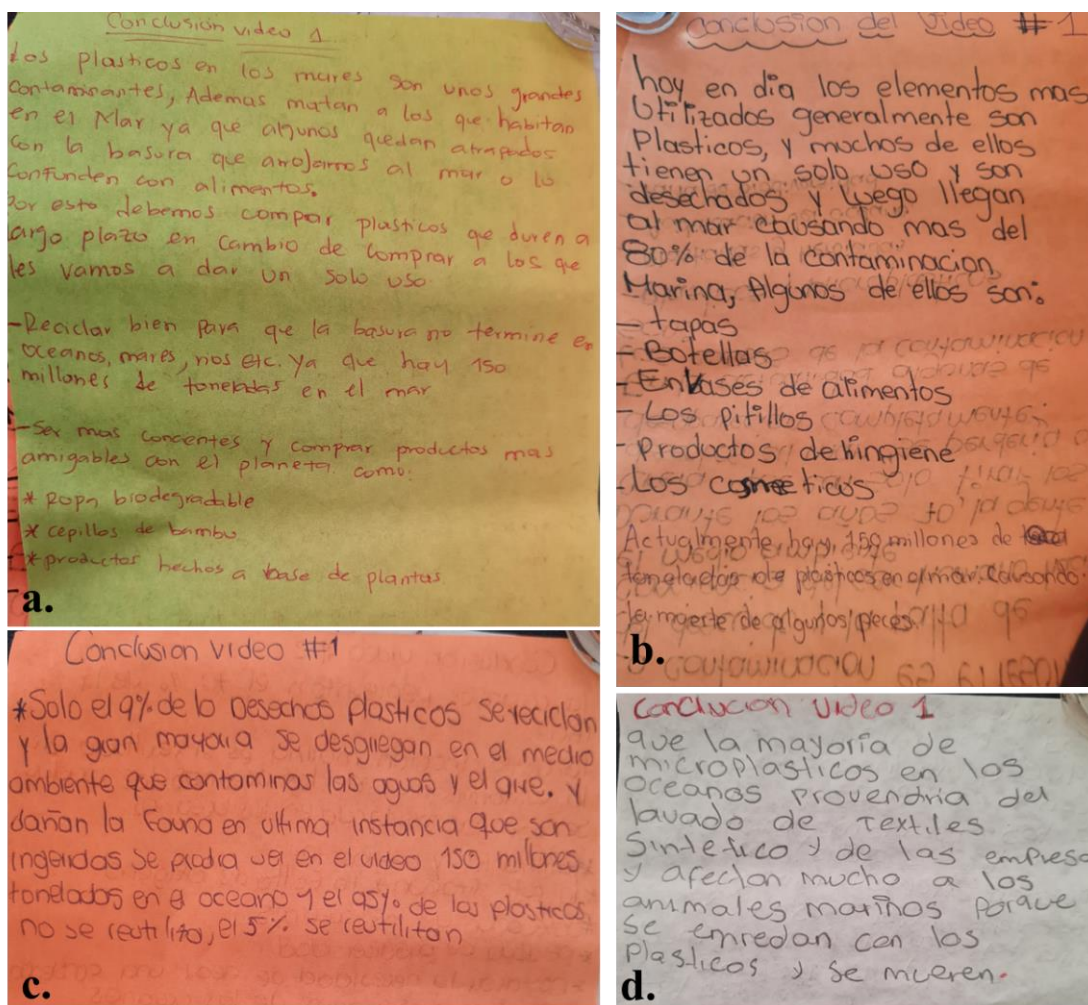 Conclusión video 1
Los plasticos en los mares son unos grandes
contaminantes, Ademas matan a los que habitan
en el Mar ya que algunos quedan atrapados
con la basura que arrojamos al mar o lo
confunden con alimentos.
por esto debemos compar plasticos qe duren a
largo plazo en cambio de comprar a los que
les vamos a dar un solo uso
-Reciclar bien para que la basura no termine en
oceanos, mares, rios etc. ya que hay 150
millones de toneladas en el mar
-Ser mas concentes y comprar productos mas
amigables con el planeta como:
* Ropa biodegradable
* cepillos de bambu
* productos hechos a base de plantas
a.
Conclosion del Video #1
hoy en dia los elementos mas
Utilizados generalmente son
Plasticos, y muchos de ellos
tienen un solo uso y son
desechados y luego llegan
al mar causando mas del
80% de la contaminacion
Marina, Algunos de ellos son:
- tapas
- Botellas
- Envases de alimentos
- Los pitillos
- Productos de hingiene
- Los cosmeticos
Actualmente hay 150 millones de
toneladas de plasticos en el mar causando
la muerte de algunos peces
b.
Conclusion video #1
*Solo el 9% de lo Desechos plasticos se reciclan
y la gran mayoria se desgliegan en el medio
ambiente que contaminas las aguas y el aire. y
dañan la fauna en ultima instancia que son
ingeridas se podia ver en el video 150 millones
toneladas en e oceano y el 95% de las plasticos
no se reutiliza, el 5% se reutilitan
c.
Conclucion Video 1
que la mayoría de
microplasticos en los
oceanos provendria del
lavado de Textiles
Sintetico y de las empresa
y afectan mucho a los
animales marinos porque
se enredan con los
Plasticos y se mueren.
d.